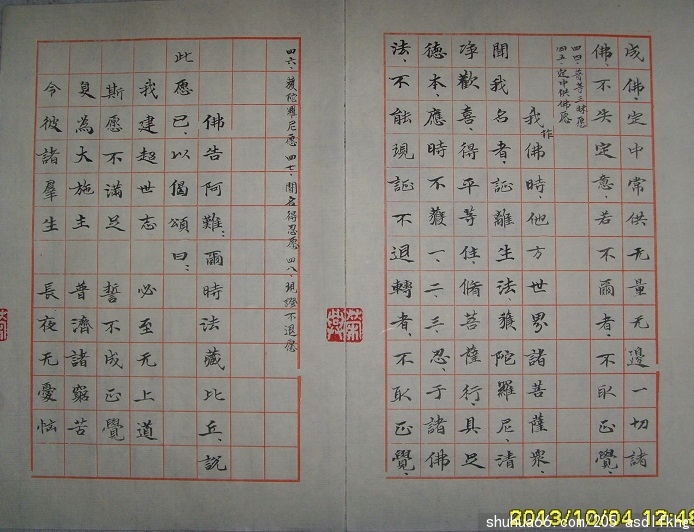 成佛、定中常供无量无邊一切諸
佛、不失定意、若不爾者、不取正覺、
四四、普等三昧愿
四五、定中供佛愿
我作佛時、他方世界諸菩薩衆、
聞我名者、証離生法、獲陀羅尼、清
净歡喜、得平等住、脩菩薩行、具足
德本、應時不獲一、二、三、忍、于諸佛
法、不能現証不退轉者、不取正覺、
四六、獲陀羅尼愿 四七、聞名得忍愿 四八、現證不退愿
佛告阿難：爾時法藏比丘、說
此愿已、以偈頌曰：
我建超世志 必至无上道
斯愿不滿足 誓不成正覺
復為大施主 普濟諸窮苦
令彼諸羣生 長夜无憂惱
2013/10/04 12:48
shuhua66.com/205 asdlfkhg